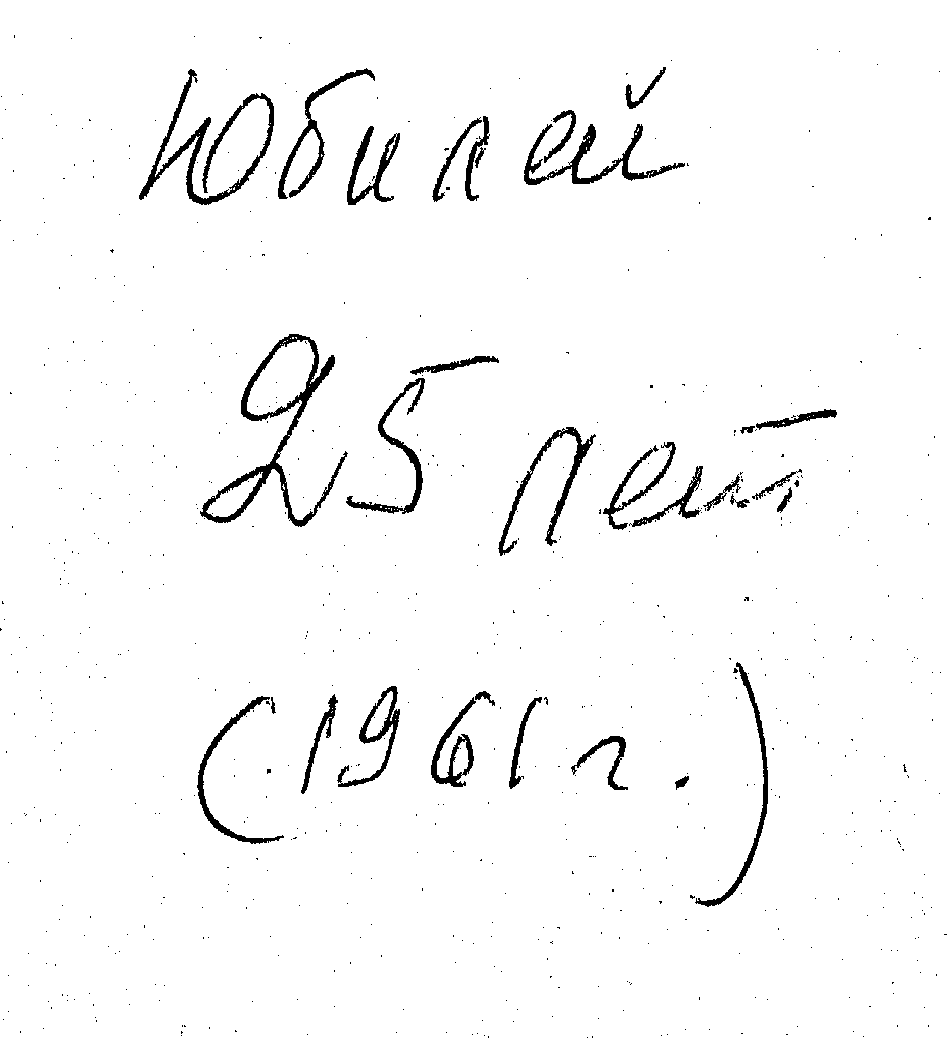 Юбилей
25 лет
(1961 г.)